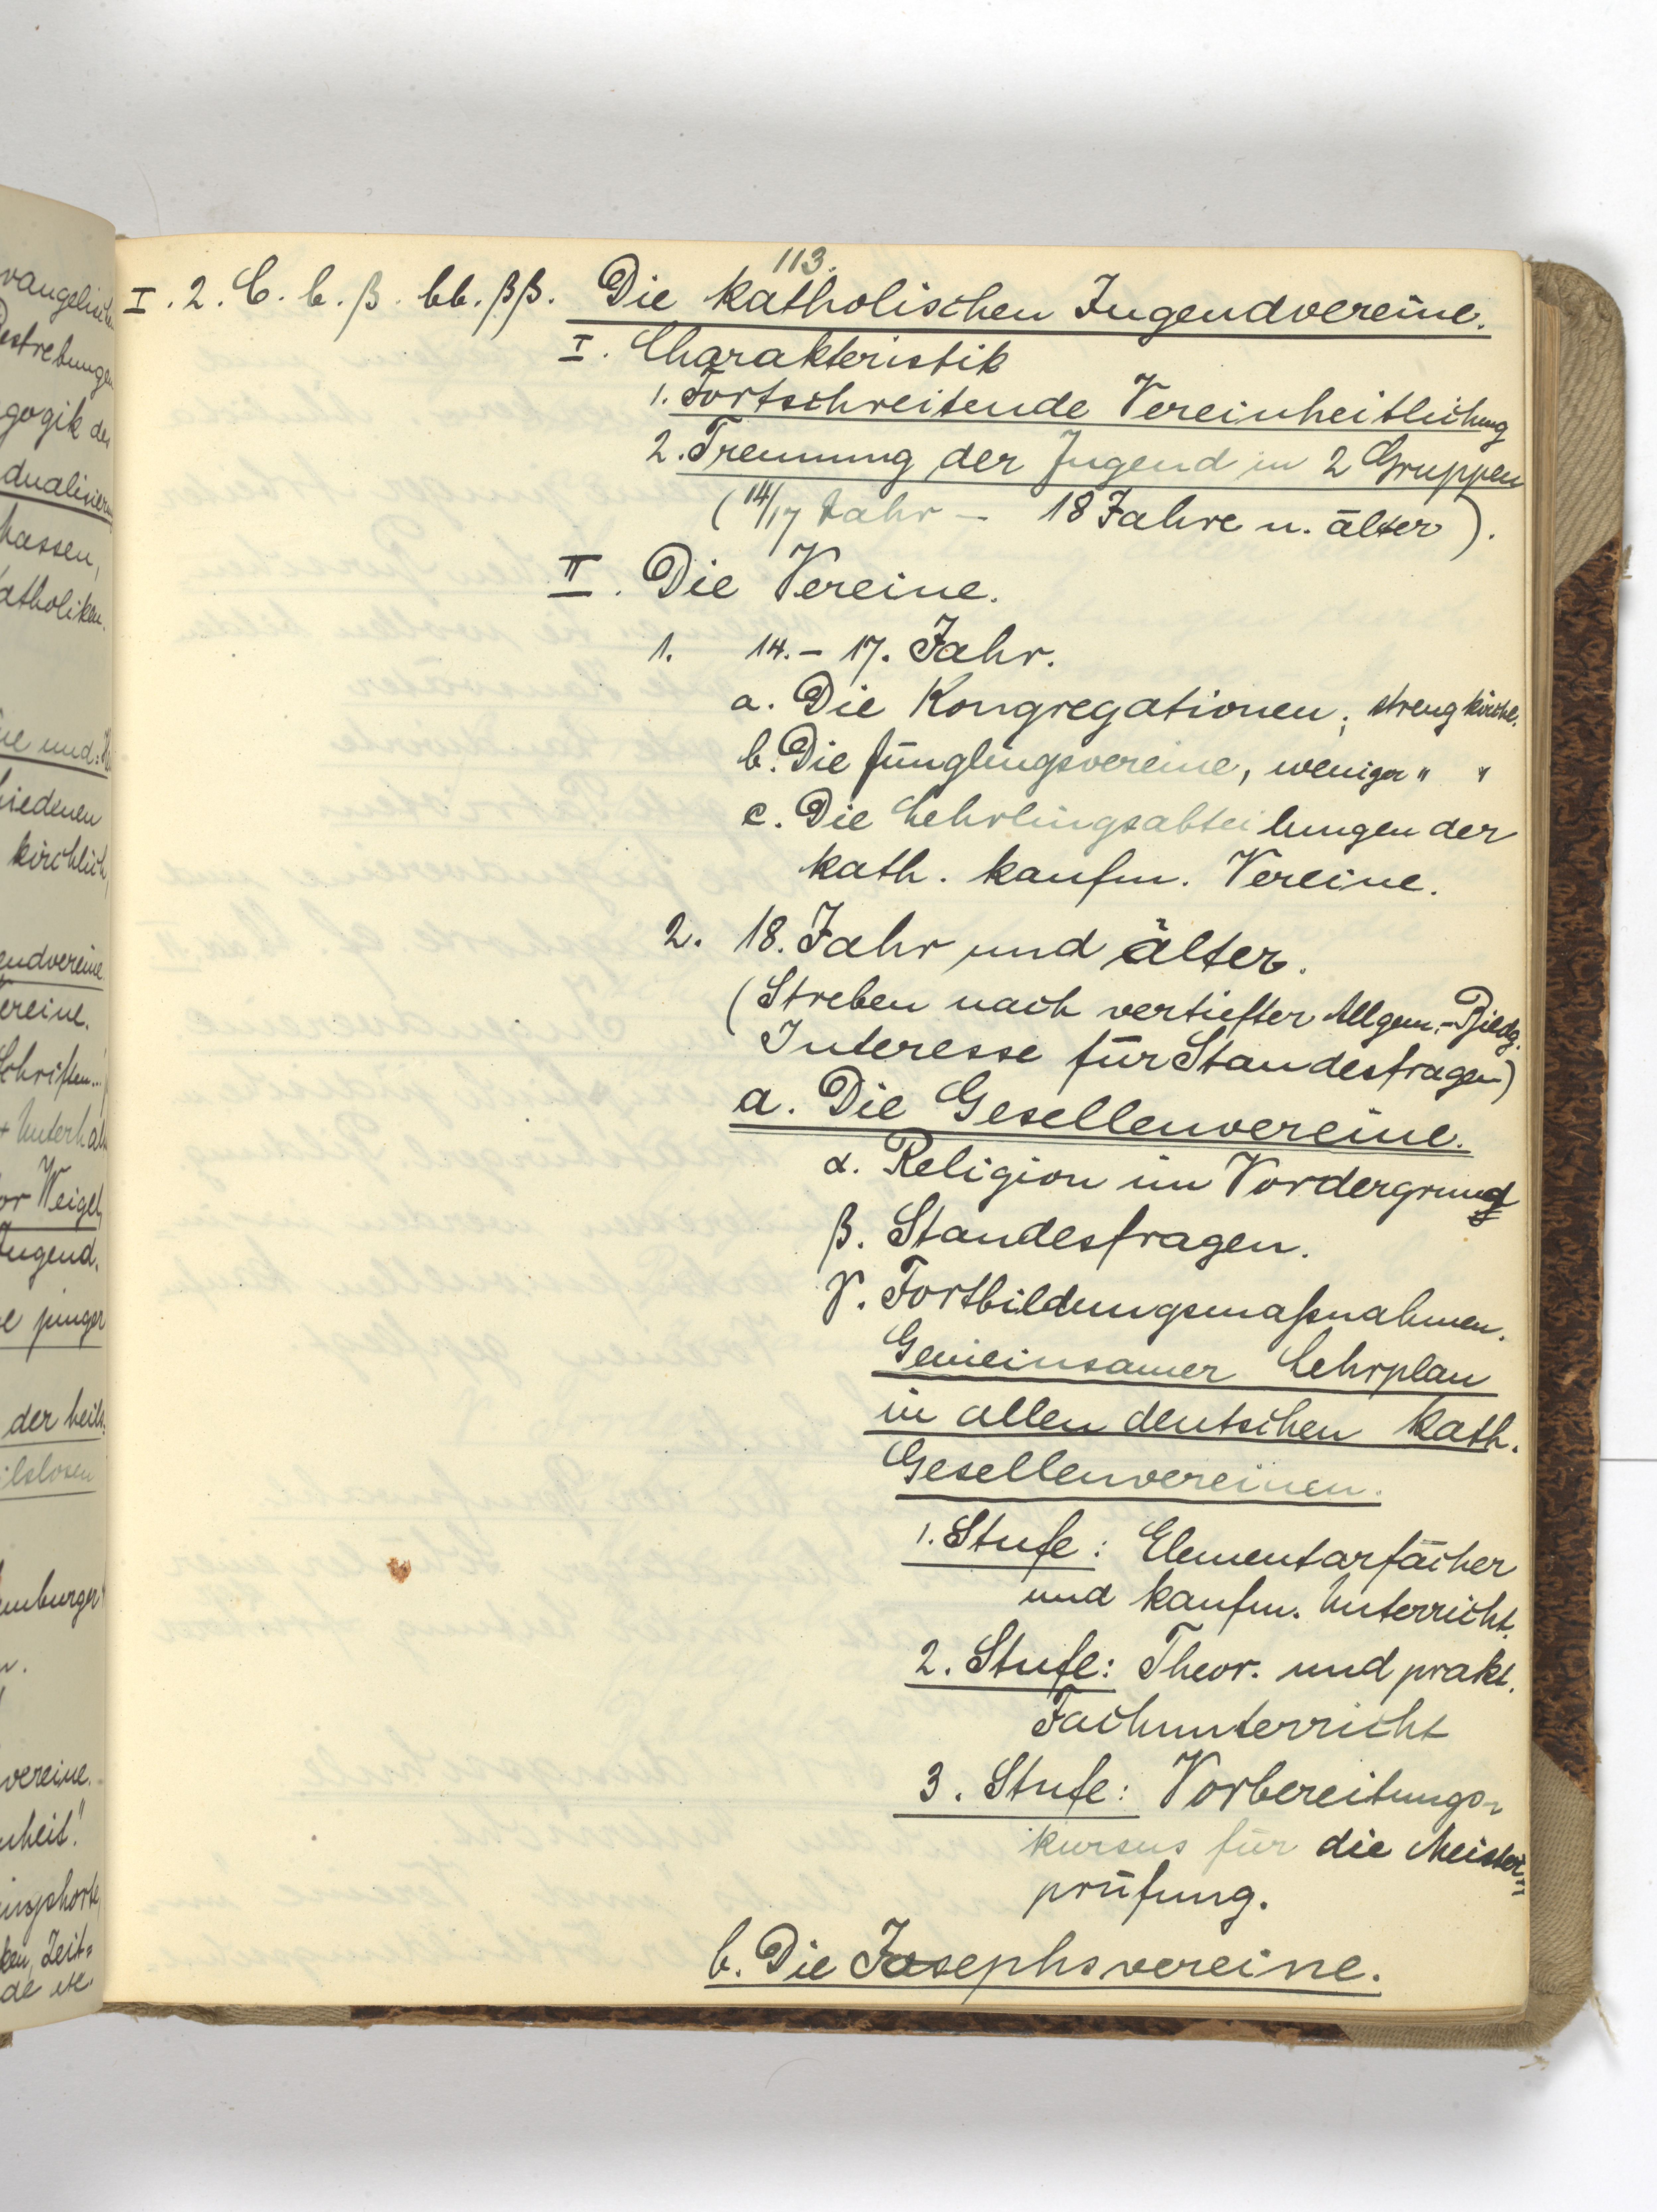 vangelischen
Bestrebungen
gogik der
dualisierung
hassen,
Katholiken.
hiedenen
kirchlich,
gendvereine
ereine.
Schriften..
+ Unterhal
or Weigel
Jugend.
e junger
der heils
ilslosen
emburger"
vereine.
nheit."
ken, Zeit=
de etc.
113.
I. 2. C. b. β. bb. ββ. Die katholischen Jugendvereine.
I. Charakteristik
1. Fortschreitende Vereinheitlichung
2. Trennung der Jugend in 2 Gruppen
(14/17 Jahr – 18 Jahre u. älter).
II. Die Vereine.
1. 14. – 17. Jahr.
a. Die Kongregationen; streng kirchl.
b. Die Jünglingsvereine, weniger " "
c. Die Lehrlingsabteilungen der
kath. kaufm. Vereine.
2. 18. Jahr und älter.
(Streben nach vertiefter Allgem.-Bildg.
Interesse für Standesfragen)
a. Die Gesellenvereine.
α. Religion im Vordergrund
β. Standesfragen.
γ. Fortbildungsmaßnahmen.
Gemeinsamer Lehrplan
in allen deutschen kath.
Gesellenvereinen.
1. Stufe: Elementarfächer
und kaufm. Unterricht.
2. Stufe: Theor. und prakt.
Fachunterricht
3. Stufe: Vorbereitungs-
kursus für die Meister=
prüfung.
b. Die Josephsvereine.